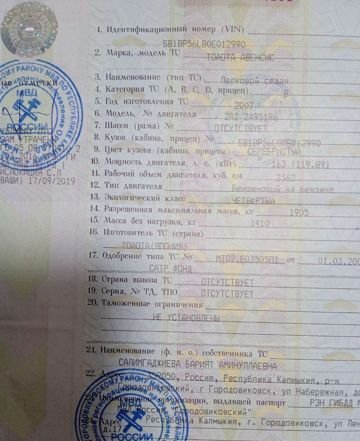 1. Идентификационный номер (VIN)
SB1BP56L80E012990
2. Марка, модель ТС
ТОЙОТА АВЕНСИС
3. Наименование (тип ТС) Легковой седан
4. Категория ТС (А, В, С, D, прицеп) В
5. Год изготовления ТС 2007
6. Модель, № двигателя 2AZ 2495186
7. Шасси (рама) № ОТСУТСТВУЕТ
8. Кузов (кабина, прицеп) № SB1BP56L80E012990
9. Цвет кузова (кабины, прицепа)
10. Мощность двигателя, л. с. (кВт) 163 (119.89)
11. Рабочий объем двигателя, куб. см 2362
12. Тип двигателя Бензиновый на бензине
13. Экологический класс ЧЕТВЕРТЫЙ
14. Разрешенная максимальная масса, кг 1905
15. Масса без нагрузки, кг 1410
16. Изготовитель ТС (страна)
ТОЙОТА(ЯПОНИЯ)
17. Одобрение типа ТС № от 01.03.200
САТР ФОНД
18. Страна вывоза ТС ОТСУТСТВУЕТ
19. Серия, № ТД, ТПО ОТСУТСТВУЕТ
20. Таможенные ограничения
НЕ УСТАНОВЛЕНЫ
21. Наименование (ф. и. о.) собственника ТС
САЛИМГАДЖИЕВА БАРИЯТ АМИНУЛЛАЕВНА
22. Россия, Республика Калмыкия, р-н
г Городовиковск, ул Набережная, до
организации, выдавшей паспорт РЭН ГИБДД М
Городовиковский"
Республика Калмыкия, г. Городовиковск, ул
МВД
РОССИИ
17/09/2019
МВД
РОССИИ